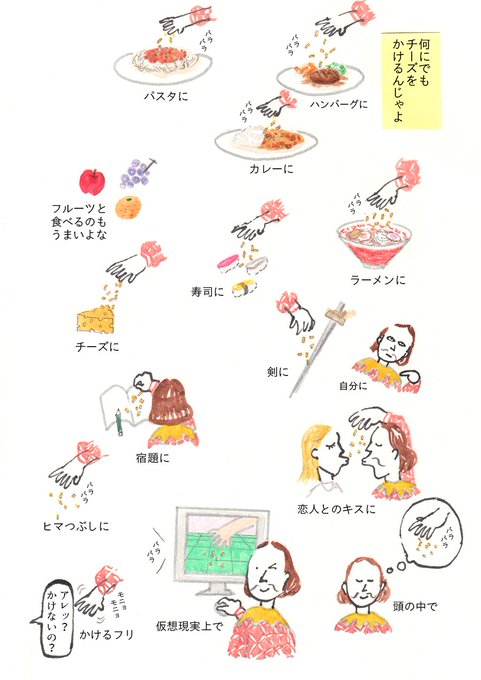 何にでも
チーズを
かけるんじゃよ
パラ
パラ
パスタに
パラ
パラ
ハンバーグに
パラ
パラ
カレーに
フルーツと
食べるのも
うまいよな
パラ
パラ
ラーメンに
パラ
パラ
寿司に
チーズに
剣に
自分に
宿題に
恋人とのキスに
パラ
パラ
ヒマつぶしに
パラ
パラ
仮想現実上で
パラ
パラ
頭の中で
モニョ
モニョ
かけるフリ
アレッ?
かけないの?